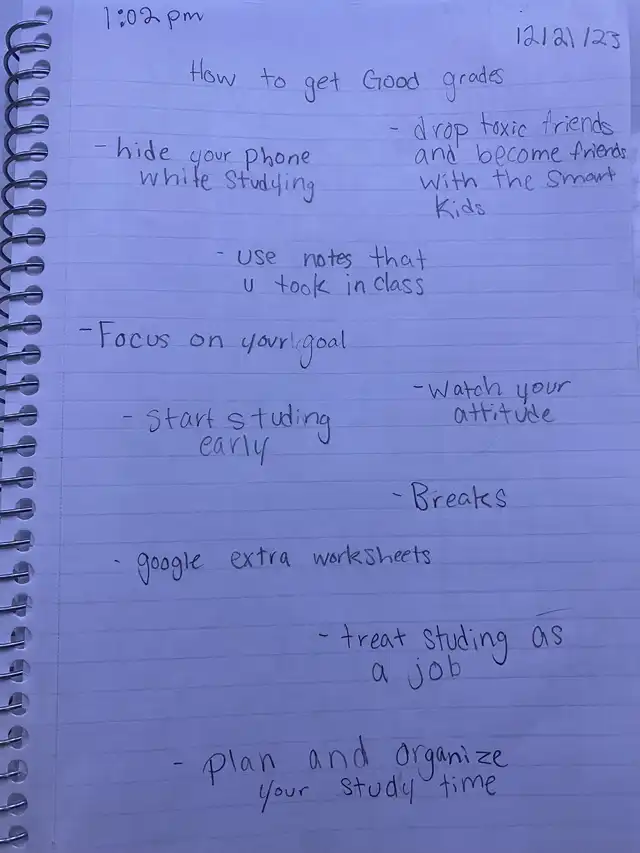 1:02 pm
12/21/23
How to get Good grades
- hide your phone
while studying
- drop toxic friends
and become friends
with the smart
kids
- use notes that
u took in class
- Focus on your goal
- Watch your
attitude
- start studing
early
- Breaks
- google extra worksheets
- treat studing as
a job
- plan and organize
your study time